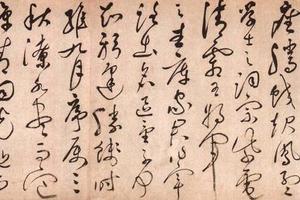 座騰蛟起鳳孟
學士之詞宗紫電
清霜王將軍
之武庫家君作宰
路出名區童子何
知躬逢勝餞時
維九月序屬三
秋潦水盡而寒
潭清煙光